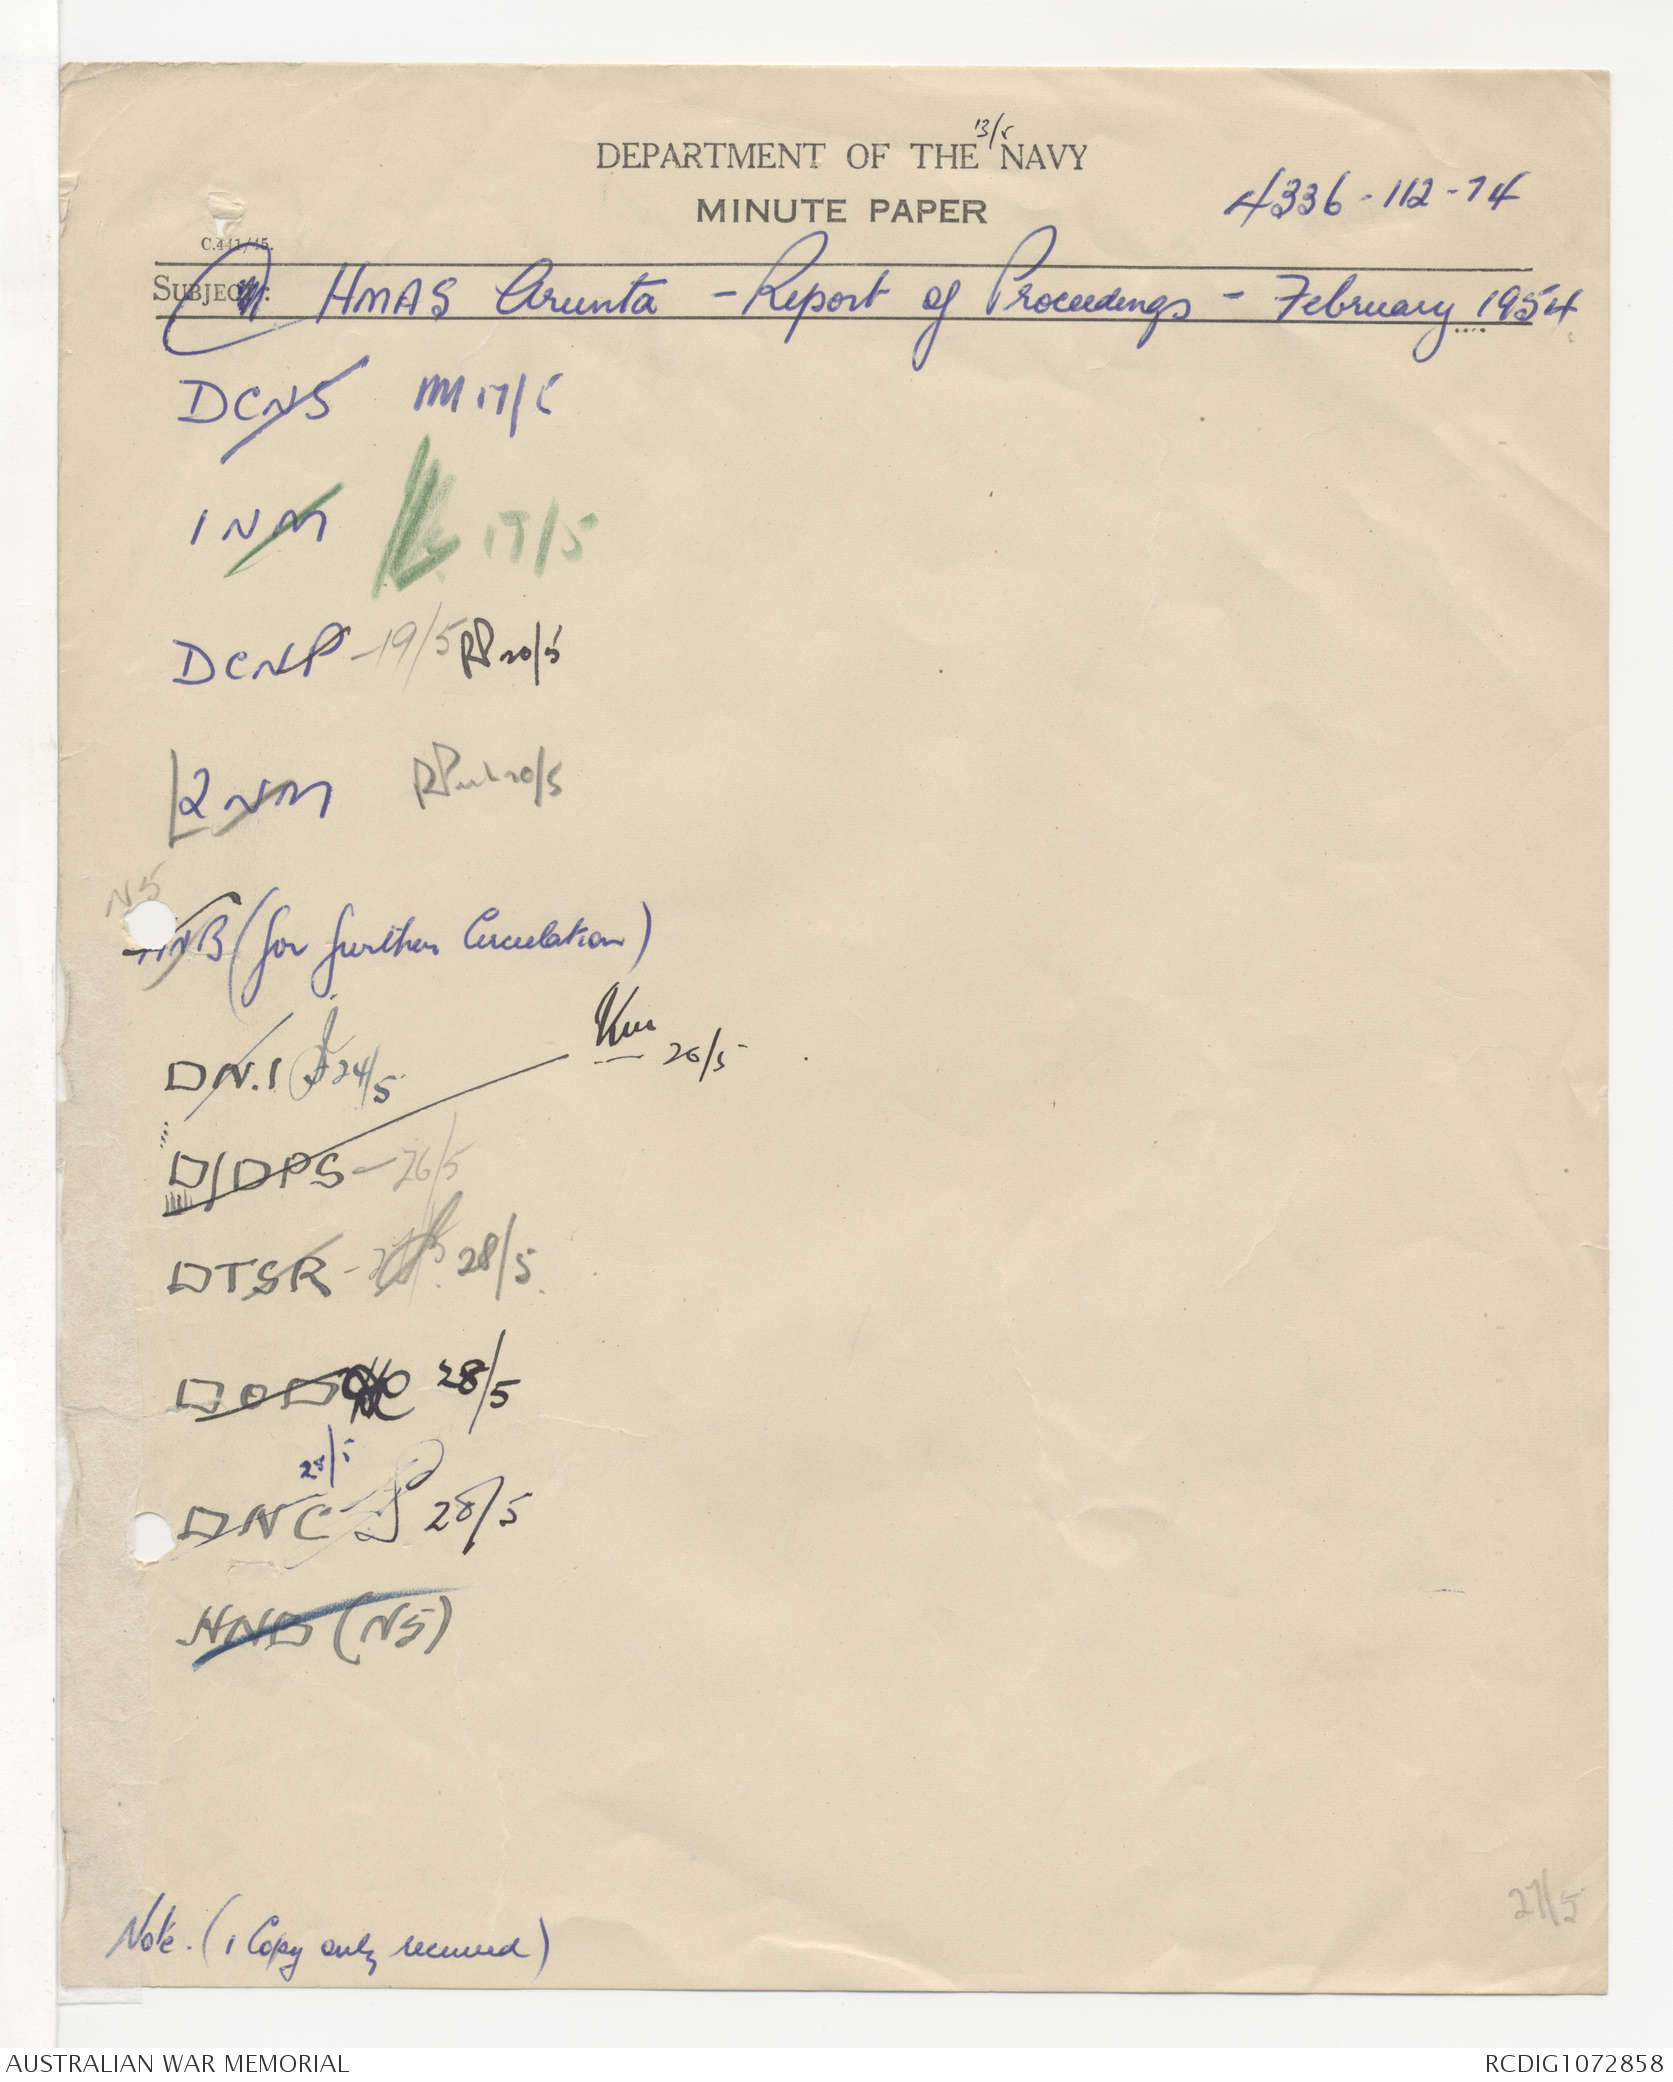 13/5
DEPARTMENT OF THE NAVY
MINUTE PAPER
4336-112-74
C.441/45.
SUBJECT: HMAS Arunta - Report of Proceedings - February 1954
DCNS 17/5
1NM 17/5
DCNP - 19/5 RP 20/5
2NM 20/5
N5
HNB (for further Circulation)
DN.I 24/5
26/5
D/DPS - 26/5
DTSR - 28/5.
DOD 28/5
28/5
DNC - 28/5
HNB (N5)
27/5
Note. (1 Copy only received)
AUSTRALIAN WAR MEMORIAL
RCDIG1072858